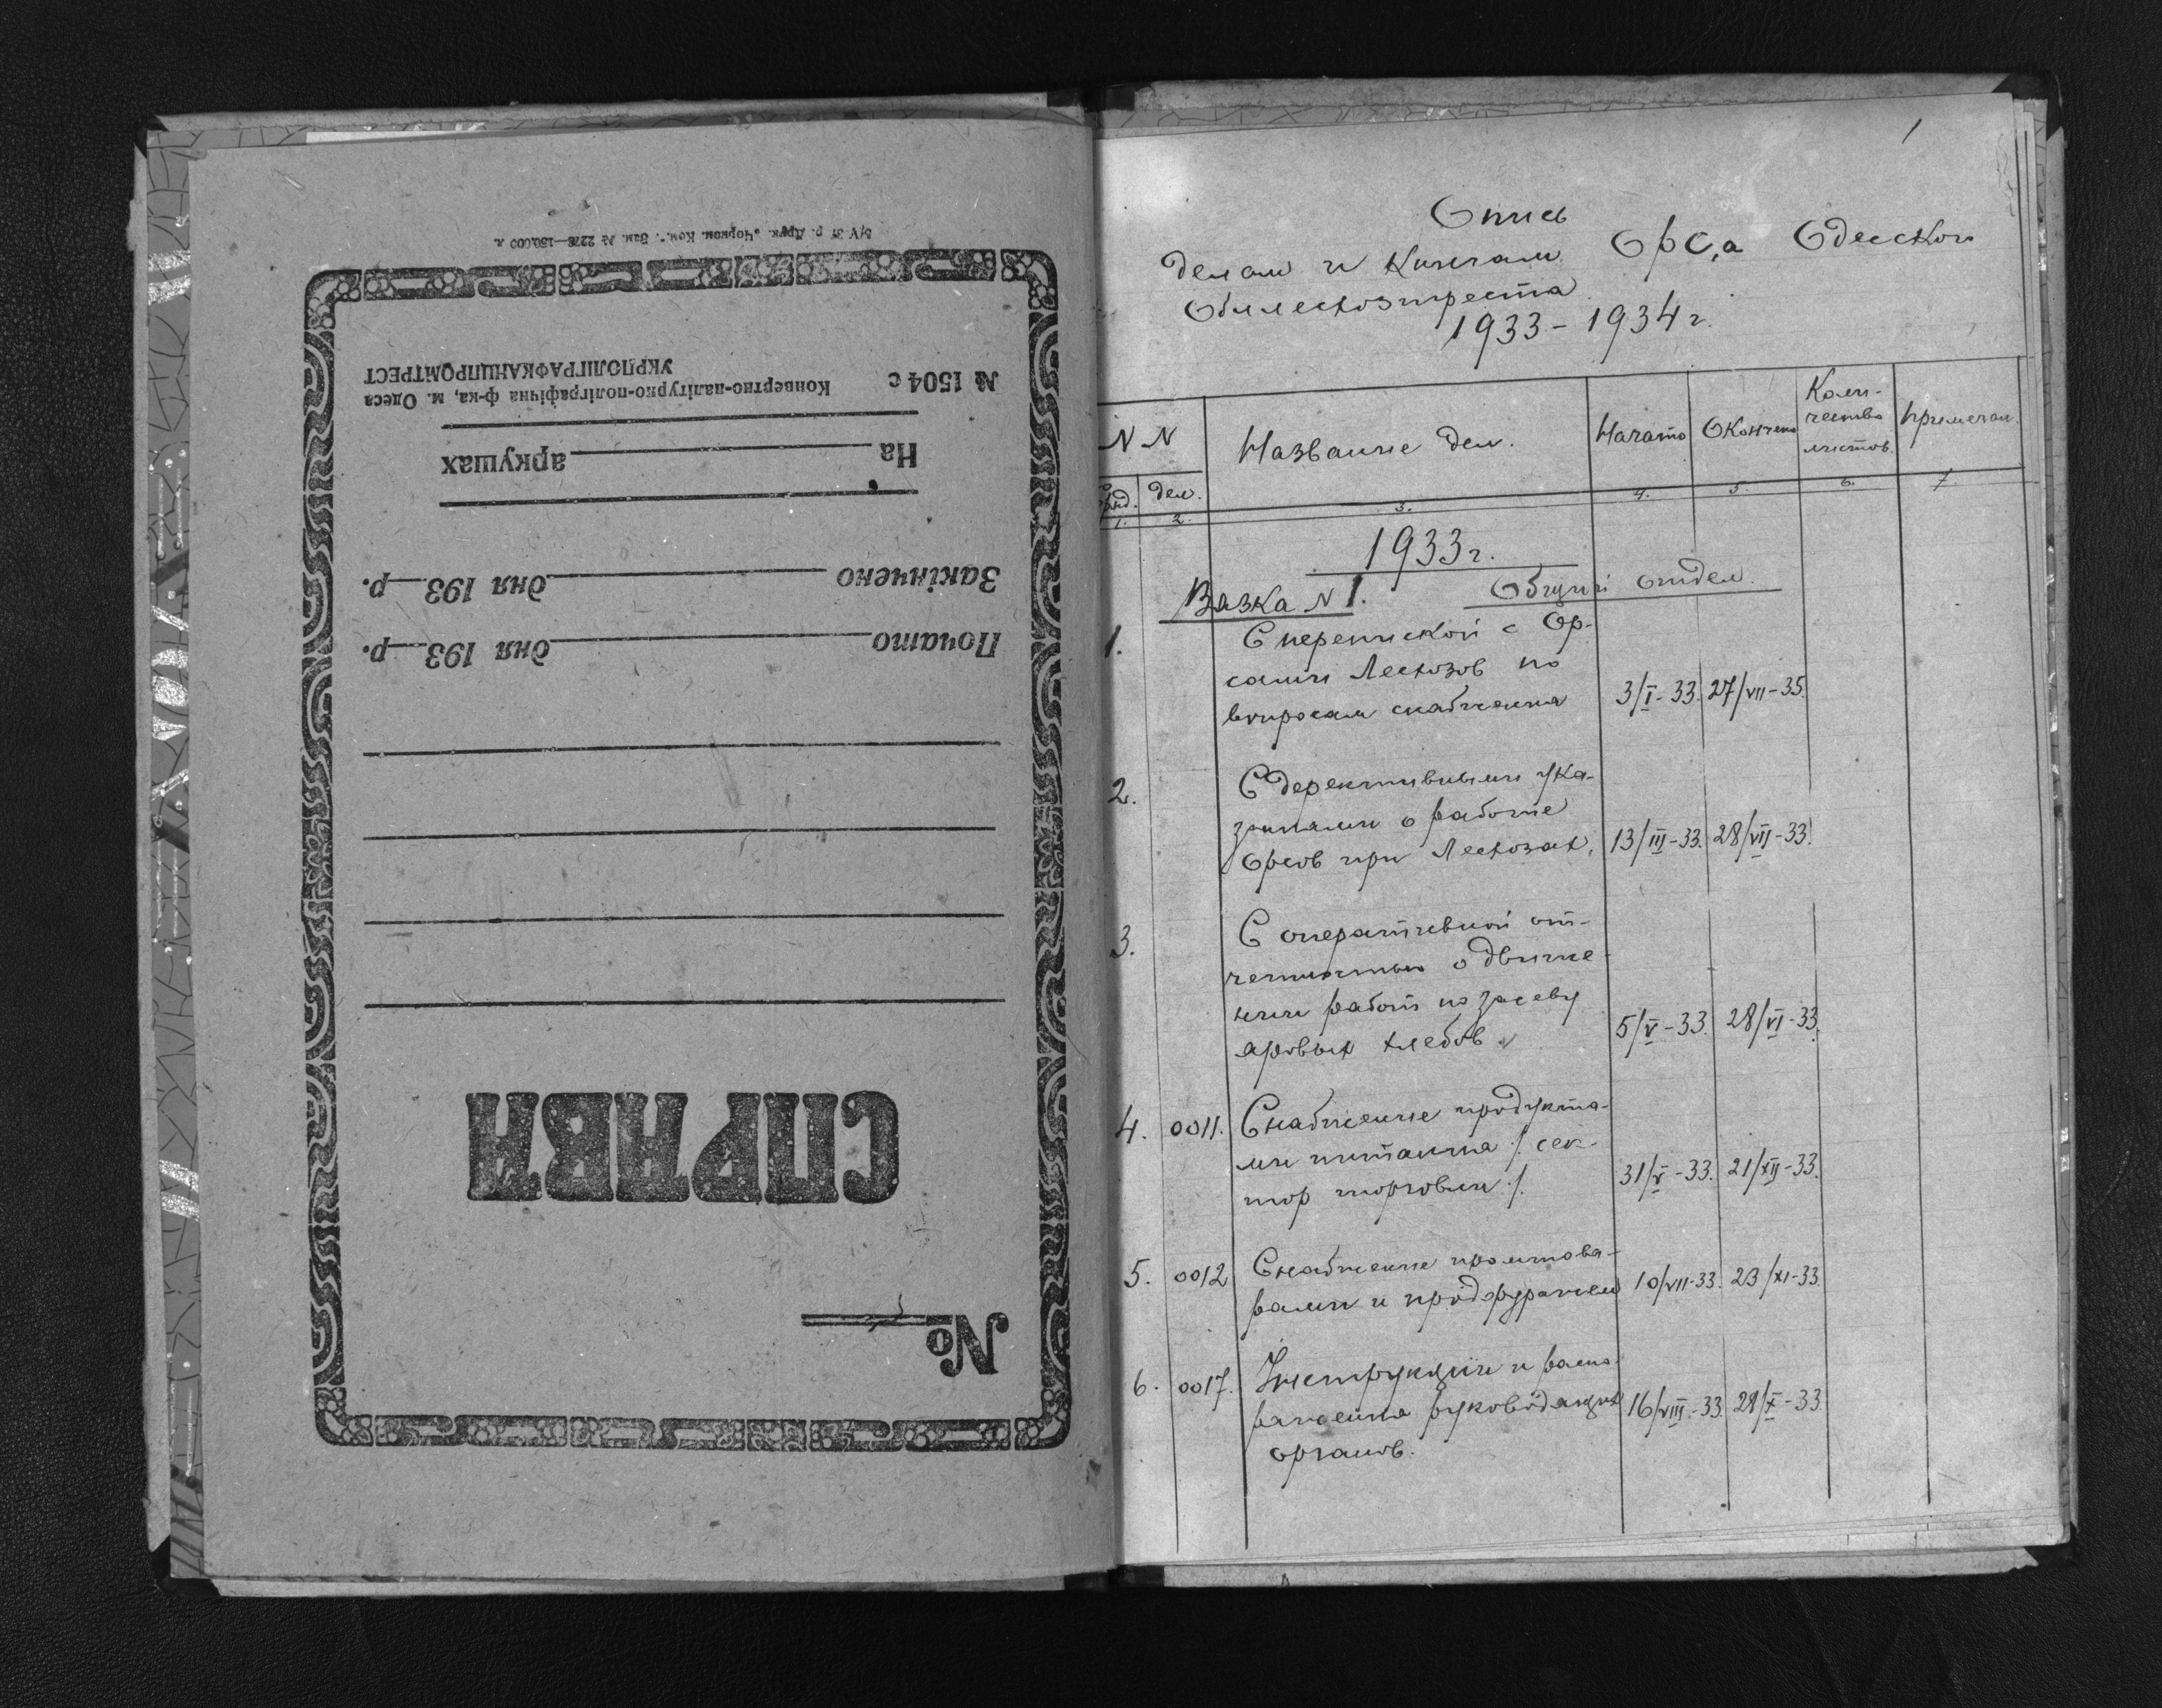 №
СПРАВА
Почато дня 193 р.
Закінчено дня 193 р.
На аркушах
№ 1504 с Конвертно-палітурно-поліграфічна ф-ка, м. Одеса
УКРПОЛІГРАФКАНЦПРОМТРЕСТ
1
Опись
делам и книгам ОРС,а Одесского
Облесхозтреста
1933-1934 г.
N N
Название дел.
Начато
Окончено
Коли-
чество
листов.
Примечан.
дел.
1. 2. 3. 4. 5. 6. 7
1933 г.
Вязка N 1. Общий отдел.
1. С перепиской с Ор-
сами Лесхозов по
вопросам снабжения 3/I-33. 27/VII-35.
2. С дерективными ука-
заниями о работе
Орсов при Лесхозах. 13/III-33. 28/VII-33.
3. С оперативной от-
четностью о движе-
нии работ по засеву
яровых хлебов. 5/V-33. 28/VI-33.
4. 0011. Снабжение продукта-
ми питания /. сек-
тор торговли ./. 31/V-33. 21/XII-33.
5. 0012 Снабжение промтова-
рами и продфуражем 10/VII-33. 23/XI-33.
6. 0017. Инструкции и распо-
ряжения руководящих 16/VIII-33. 28/X-33.
органов.